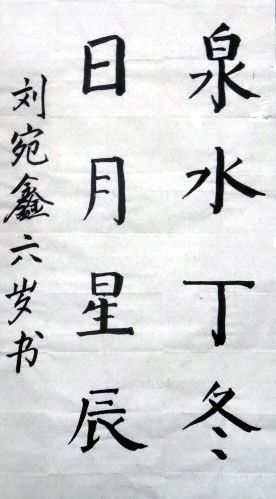 泉水丁冬
日月星辰
刘宛鑫六岁书